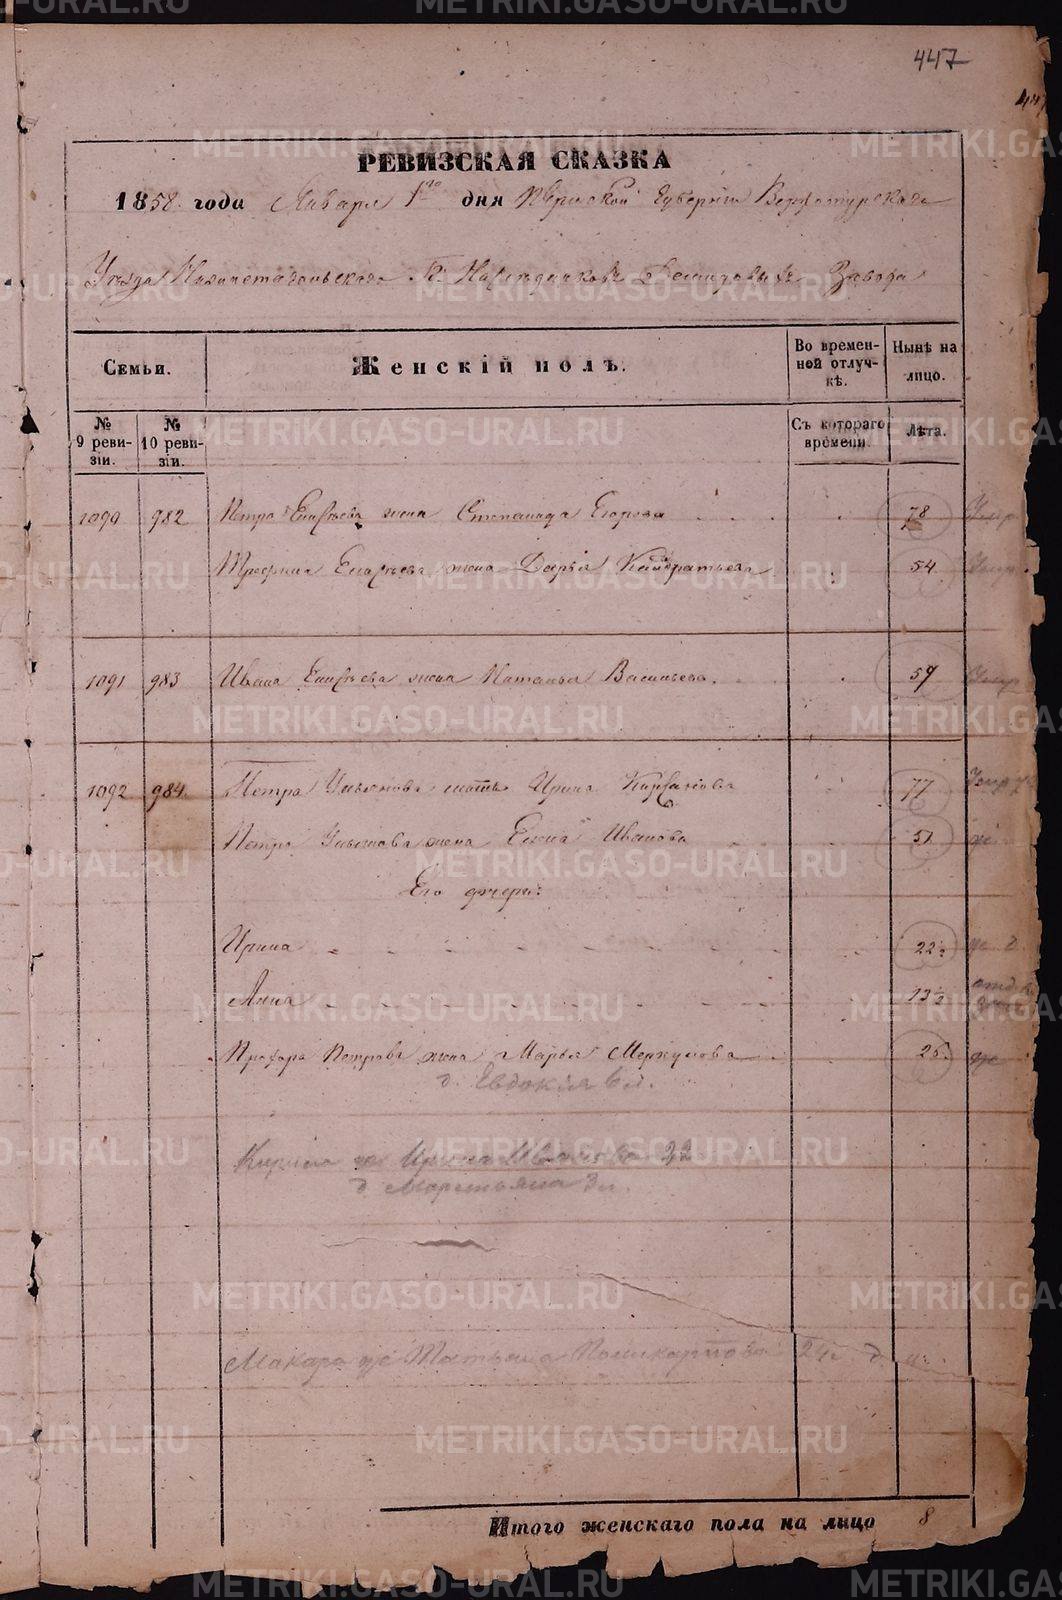 447
РЕВИЗСКАЯ СКАЗКА
1858 года Января 1го дня Пермской Губерніи Верхотурскаго
Уѣзда Нижнетагильскаго Г. Наслѣдниковъ Демидовыхъ Завода
Семьи.
Женскій полъ.
Во временной отлучкѣ.
Нынѣ на лицо.
№ 9 ревизіи.
№ 10 ревизіи.
Съ котораго времени.
Лѣта.
1090 982 Петра Елисѣева жена Степанида Егорова 78 Умер
Трефила Елисѣева жена Дарья Кондратьева 54 Умер
1091 983 Ивана Елисѣева жена Наталья Васильева. 59 Умер
1092 984. Петра Ульянова мать Ирина 77 Умер
Петра Ульянова жена Елена Иванова 51 же
Его дочери:
Ирина 22½
Анна 13½
Прохора Петрова жена Марья Меркулова 25. же
д. Евдокія 6 л.
Кирила же Ирина Иванова 22
д. Марстьяна 3 л.
Макара же Татьяна Поликарпова 24 г. д.
Итого женскаго пола на лицо 8
METRIKI.GASO-URAL.RU